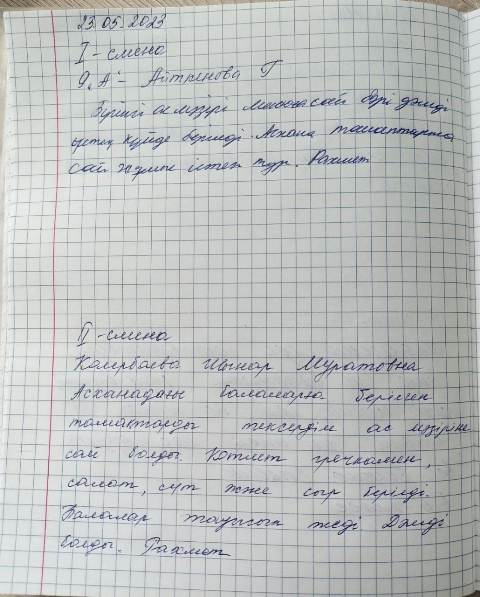 23.05.2023
I - смена
9 "А" - Айткенова Г
Бүгінгі ас мәзірі сай бәрі дәмді
күйде берілді. Асхана талаптарына
сай жұмыс істеп тұр. Рахмет
II - смена
Каирбаева Шынар Муратовна
Асханадағы балаларға берілген
тамақтарды тексердім ас мәзіріне
сай болды. Котлет гречкамен,
салат, сүт және сыр берілді.
Балалар тауысып жеді Дәмді
болды. Рахмет